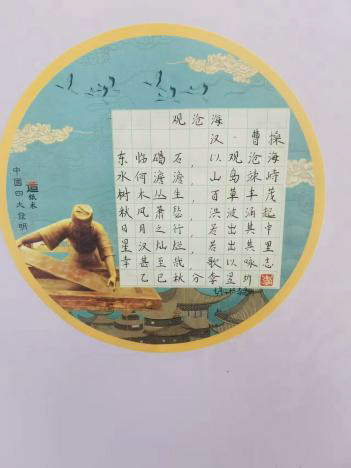 观沧海
汉·曹操
东临碣石,以观沧海
水何澹澹,山岛竦峙
树木丛生,百草丰茂
秋风萧瑟,洪波涌起
日月之行,若出其中
星汉灿烂,若出其里
幸甚至哉,歌以咏志
乙巳秋分李昱
造纸术
中國四大發明